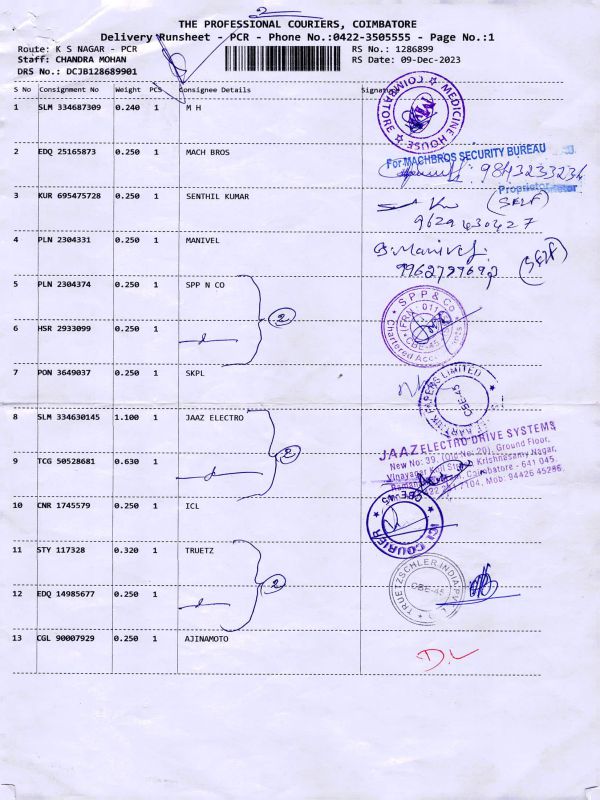 2
THE PROFESSIONAL COURIERS, COIMBATORE
Delivery Runsheet - PCR - Phone No.:0422-3505555 - Page No.:1
Route: K S NAGAR - PCR RS No.: 1286899
Staff: CHANDRA MOHAN RS Date: 09-Dec-2023
DRS No.: DCJB128689901
S No Consignment No Weight PCS Consignee Details Signature
1 SLM 334687309 0.240 1 M H
MEDICINE HOUSE ☆ COIMBATORE ☆
2 EDQ 25165873 0.250 1 MACH BROS
For MACHBROS SECURITY BUREAU
9843233234
Proprietor
3 KUR 695475728 0.250 1 SENTHIL KUMAR
(SELF)
9629430427
4 PLN 2304331 0.250 1 MANIVEL
B. Manivel
(SELF)
5 PLN 2304374 0.250 1 SPP N CO
2
SPP & Co
Chartered Accountants
CBE-45
6 HSR 2933099 0.250 1
7 PON 3649037 0.250 1 SKPL
PAPERS LIMITED
CBE-45
8 SLM 334630145 1.100 1 JAAZ ELECTRO
2
JAAZ ELECTRO DRIVE SYSTEMS
New No: 39, (Old No: 20), Ground Floor,
Vinayagar Koil Street, Krishnasamy Nagar,
Coimbatore - 641 045.
Mob: 94426 45286
9 TCG 50528681 0.630 1
10 CNR 1745579 0.250 1 ICL
ICL COURIER ★ CBE-45 ★
11 STY 117328 0.320 1 TRUETZ
2
TRUETZSCHLER INDIA PVT
CBE-45
12 EDQ 14985677 0.250 1
13 CGL 90007929 0.250 1 AJINAMOTO
D.L